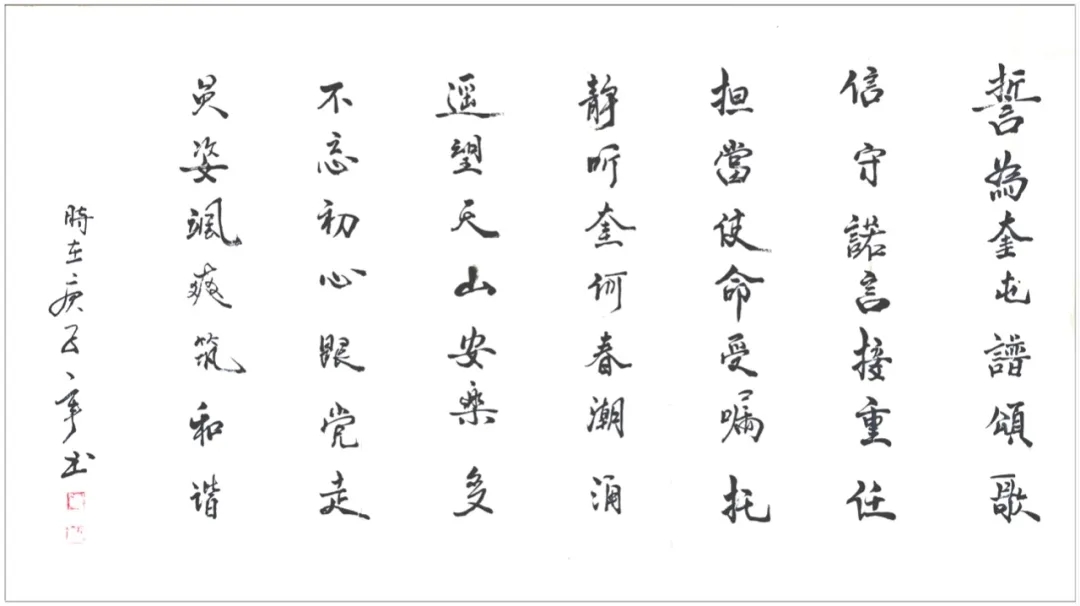 誓為奎屯譜頌歌
信守諾言接重任
担當使命受嘱托
静听奎河春潮涌
遥望天山安樂多
不忘初心跟党走
员姿颯爽筑和谐
時在庚子年书